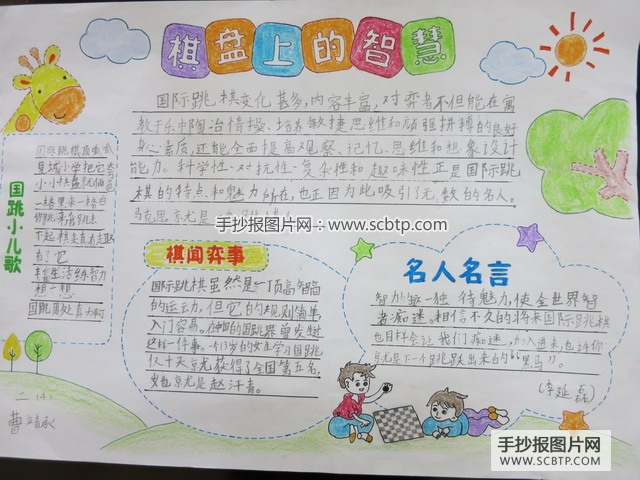 棋盘上的智慧
国际跳棋变化甚多,内容丰富,对弈者不但能在寓
教于乐中陶冶情操、培养敏捷思维和顽强拼搏的良好
心素质,还能全面提高观察、记忆、思维和想象设计
能力。科学性、对抗性、复杂性和趣味性正是国际跳
棋的特点和魅力所在,也正因为此吸引了无数的名人。
手抄报图片网:www.scbtp.com
国跳小儿歌
县城小学把它
小小棋盘
一格黑来一格白
下起棋来真有趣
有了它
生活练智力
想一想
国跳用处真大啊
棋闻弈事
国际跳棋虽然是一项高智商
的运动,但它的规则简单,
入门容易。在中国的国跳界曾发过
这样一件事。一个13岁的女生学习国跳
仅十天就获得了全国第五名,
她就是赵汗青。
名人名言
智力游戏独特魅力,使全世界智
者痴迷。相信不久的将来国际跳棋
也同样会让我们痴迷,加入进来,也许你
就是下一个跳跃出来的“黑马”。
(李延磊)
二(4)
曹靖
手抄报图片网
WWW.SCBTP.COM